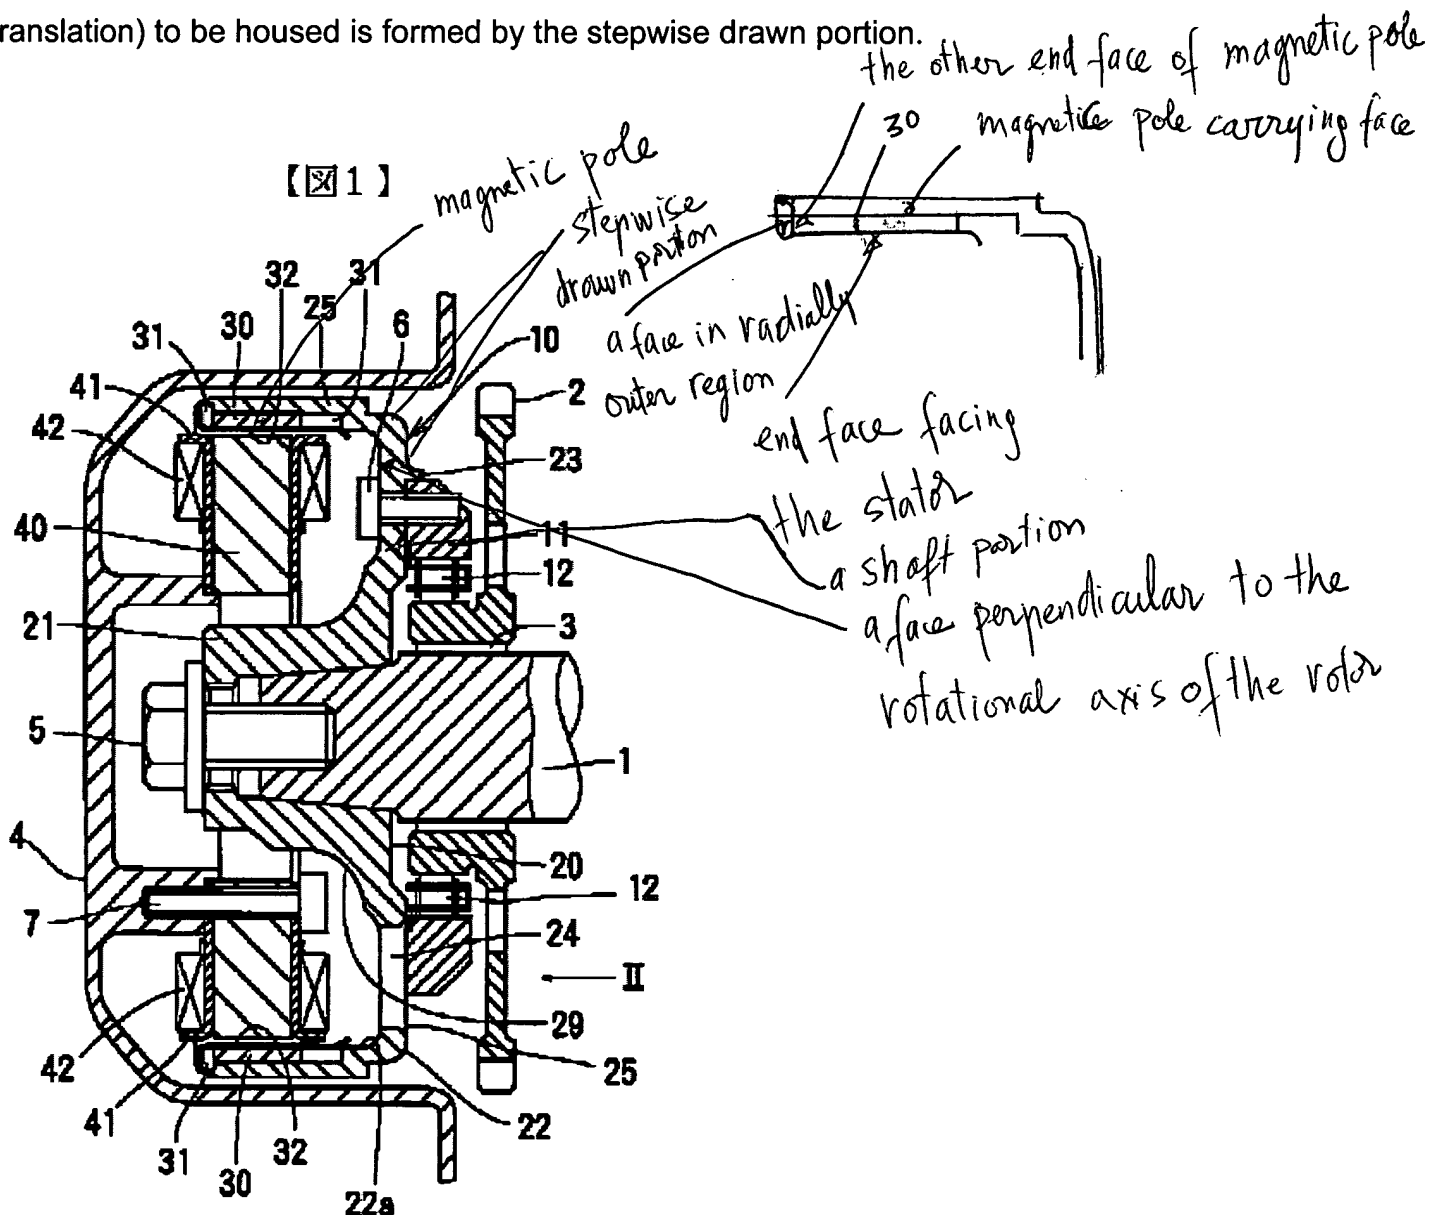 ranslation) to be housed is formed by the stepwise drawn portion.
the other end face of magnetic pole
30
magnetic pole carrying face
【図1】
magnetic pole
stepwise
drawn portion
a face in radially
outer region
end face facing
the stator
a shaft portion
a face perpendicular to the
rotational axis of the rotor
32
31
25
30
6
31
10
2
41
42
23
40
11
12
21
3
5
1
4
20
12
7
24
II
29
42
25
41
22
31
30
32
22a